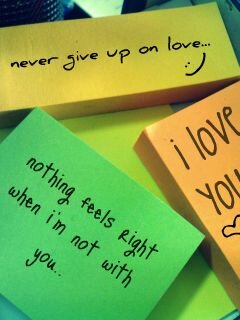 never give up on love... :)
nothing feels right
when i'm not with
you..
i love
you